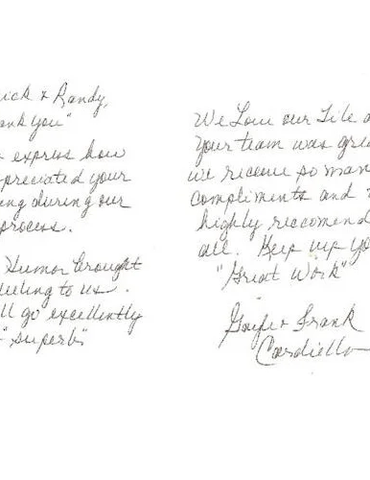 ick & Randy,
ank you"
express how
preciated your
ing during our
process.
Humor brought
eeling to us.
ll go excellently
"superb"
We Love our Tile a
Your team was grea
we receive so man
compliments and
highly reccomend
all. Keep up yo
"Great Work"
& Frank
Cardiello